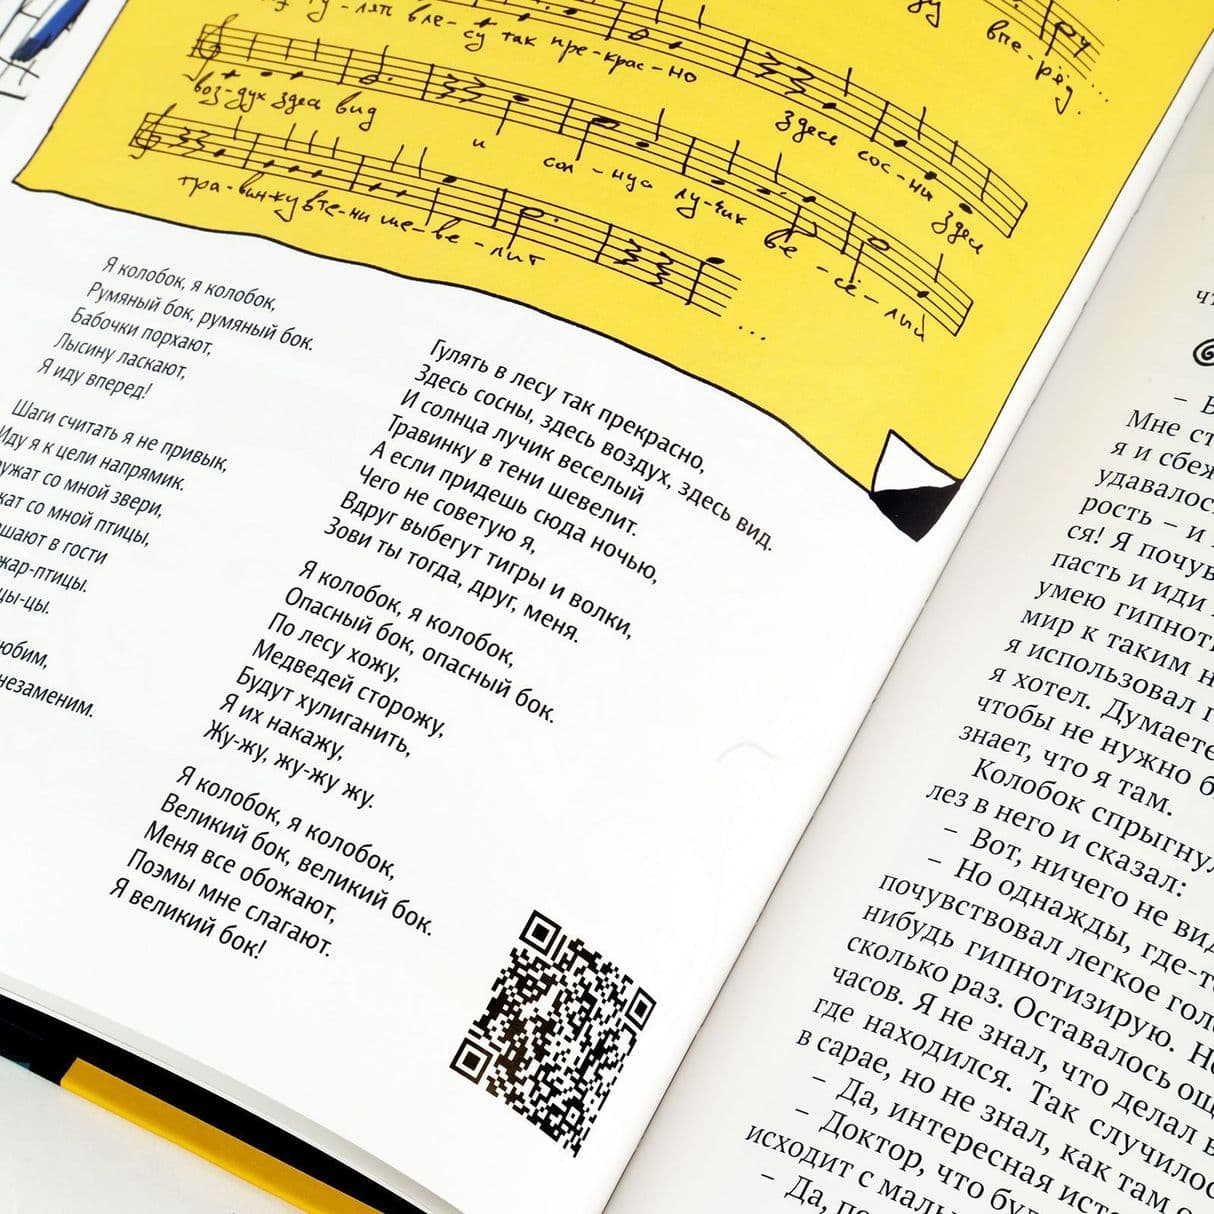 гу-лять в ле-су так пре-крас-но
впе-рёд...
здесь сос-ны здесь
воз-дух здесь вид
и сол-нца лу-чик ве-сё-лый
тра-вин-ку в те-ни ше-ве-лит
...
Я колобок, я колобок,
Румяный бок, румяный бок.
Бабочки порхают,
Лысину ласкают,
Я иду вперед!
Шаги считать я не привык,
Иду я к цели напрямик.
со мной звери,
со мной птицы,
в гости
жар-птицы.
незаменим.
Гулять в лесу так прекрасно,
Здесь сосны, здесь воздух, здесь вид.
И солнца лучик веселый
Травинку в тени шевелит.
А если придешь сюда ночью,
Чего не советую я,
Вдруг выбегут тигры и волки,
Зови ты тогда, друг, меня.
Я колобок, я колобок,
Опасный бок, опасный бок.
По лесу хожу,
Медведей сторожу,
Будут хулиганить,
Я их накажу,
Жу-жу, жу-жу жу.
Я колобок, я колобок,
Великий бок, великий бок.
Меня все обожают,
Поэмы мне слагают.
Я великий бок!
–
Мне
я и
удавалос
рость – и
ся! Я
пасть и иди
умею
мир к таким
я использовал
я хотел. Думаете
чтобы не нужно
знает, что я там.
Колобок
лез в него и сказал:
– Вот, ничего не
– Но однажды,
почувствовал легкое
нибудь гипнотизирую.
сколько раз. Оставалось
часов. Я не знал, что делал
где находился. Так
в сарае, но не знал, как там
– Да, интересная
– Доктор, что
исходит с
– Да,